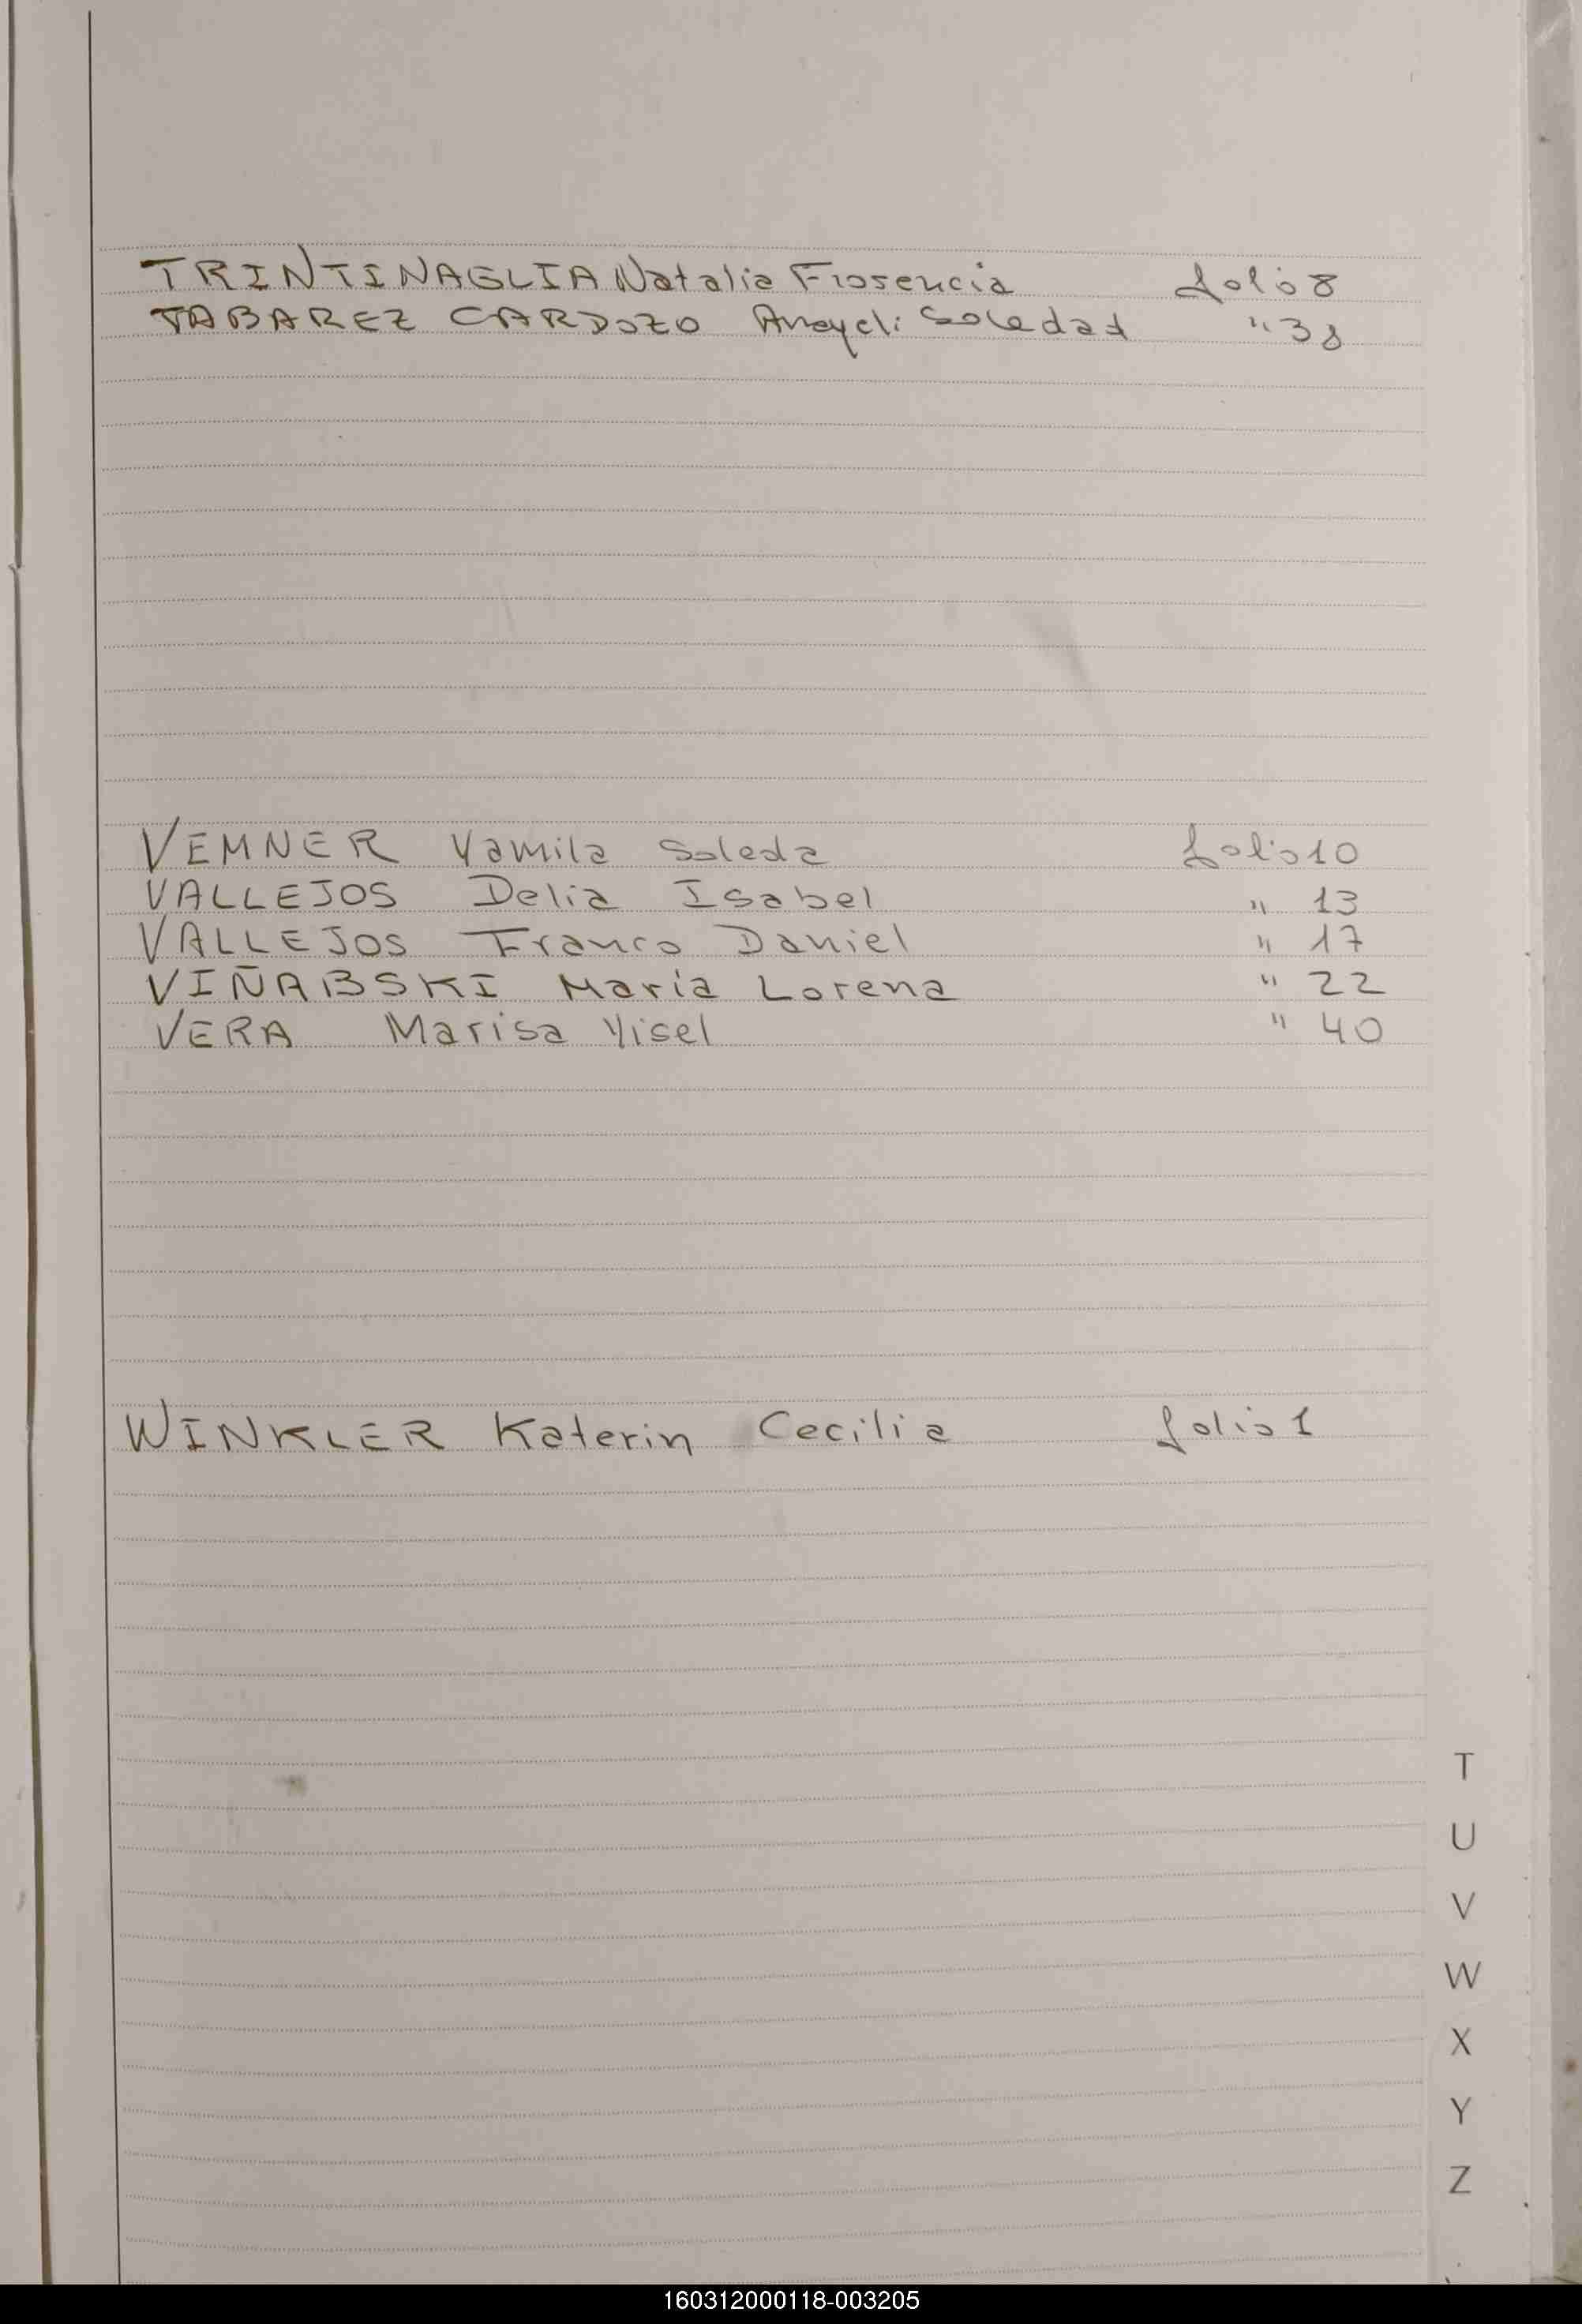 TRINTINAGLIA Natalia Florencia folio 8
TABAREZ CARDOZO Anaycli Soledad " 38
VEMNER Yamila Soleda folio 10
VALLEJOS Delia Isabel " 13
VALLEJOS Franco Daniel " 17
VIÑABSKI Maria Lorena " 22
VERA Marisa Yisel " 40
WINKLER Katerin Cecilia folio 1
T
U
V
W
X
Y
Z
160312000118-003205